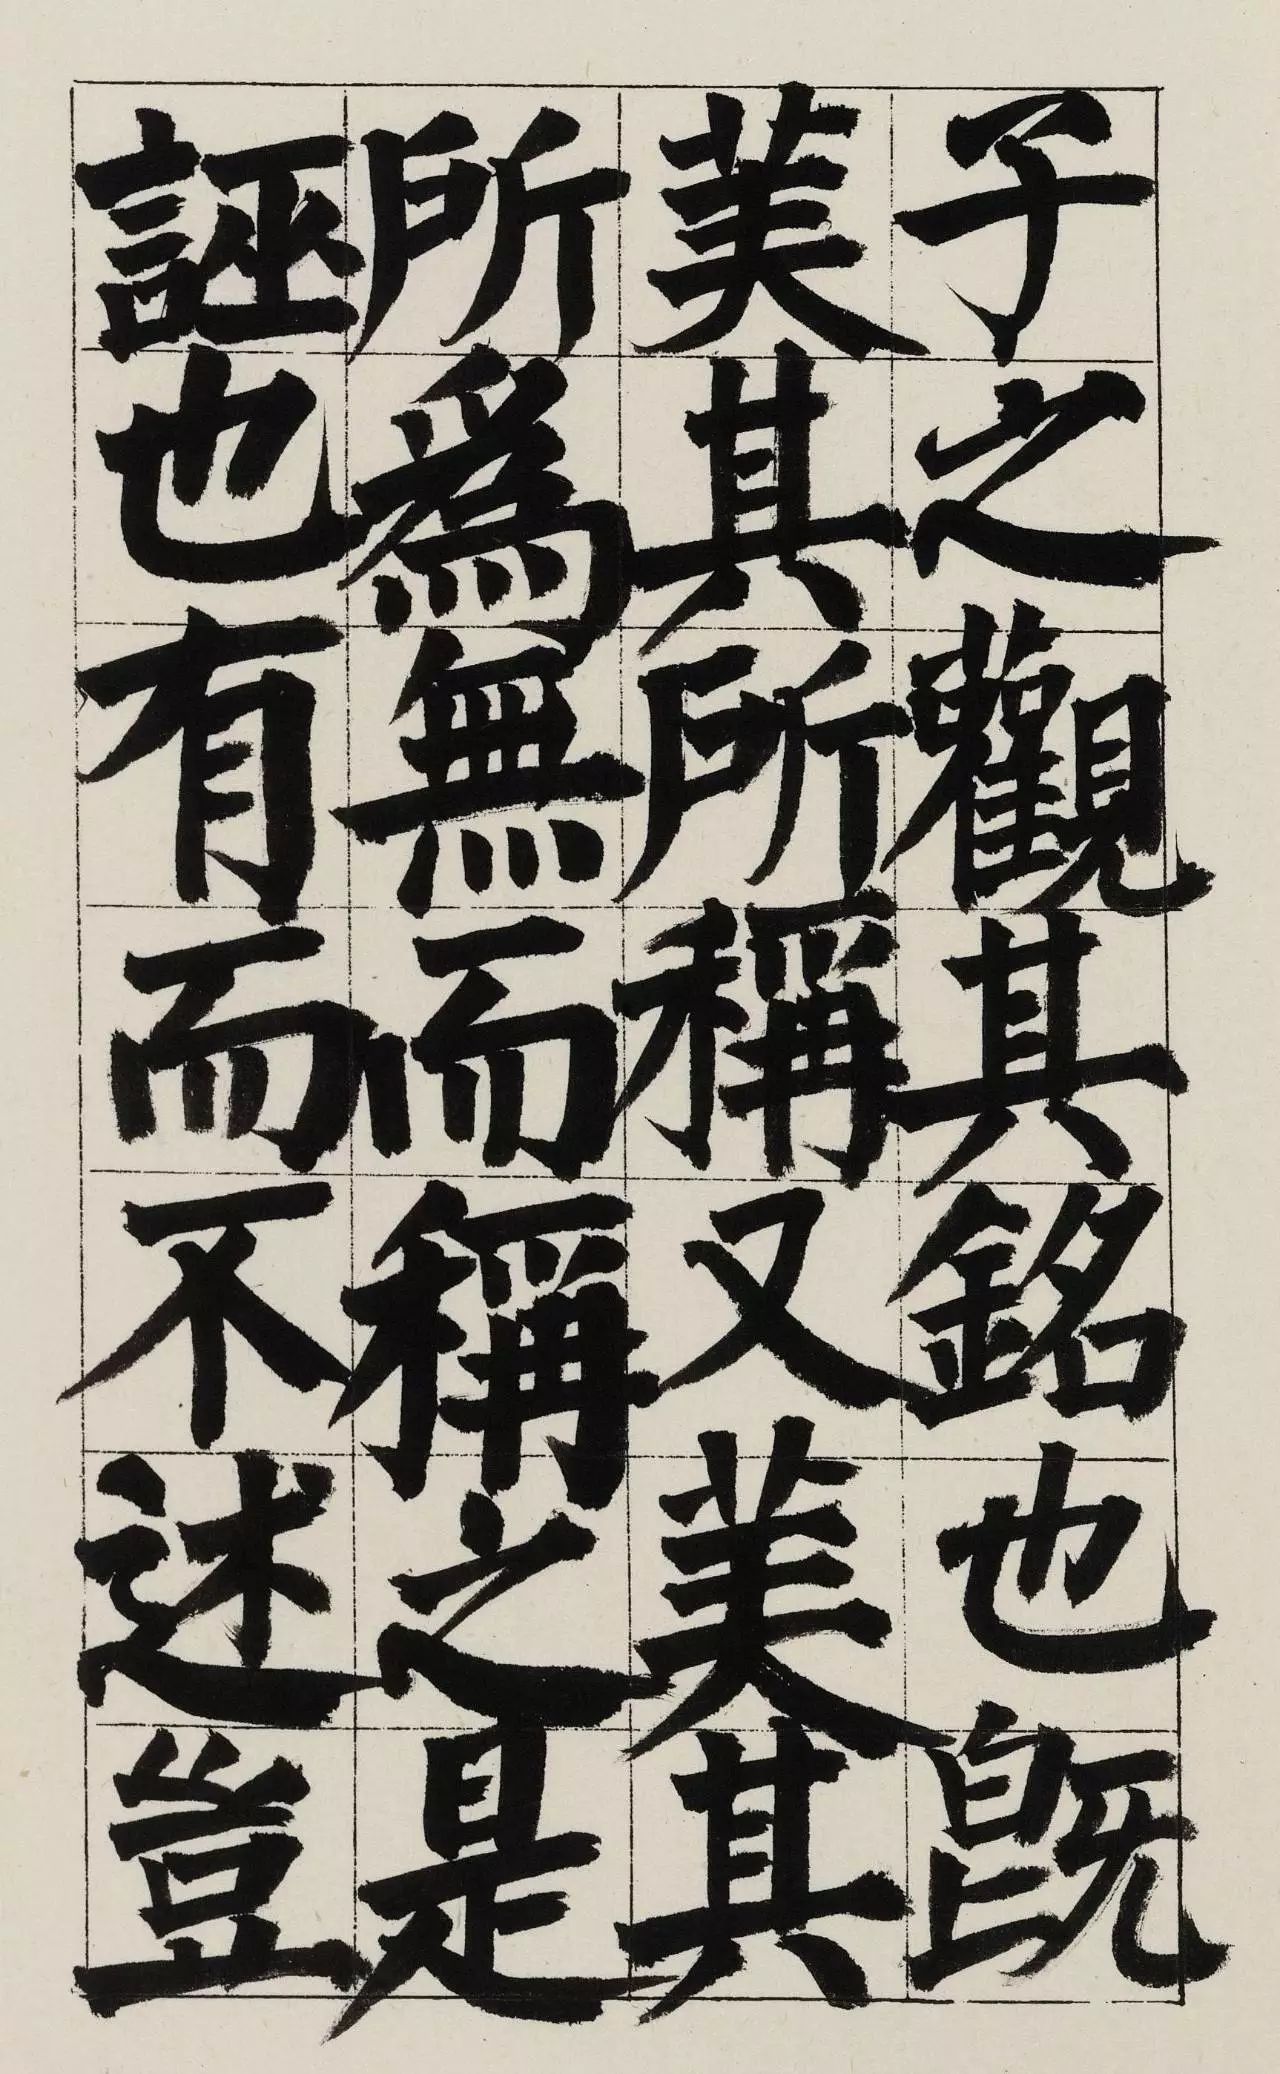 子之觀其銘也既
美其所稱又美其
所為無而稱之是
誣也有而不述豈